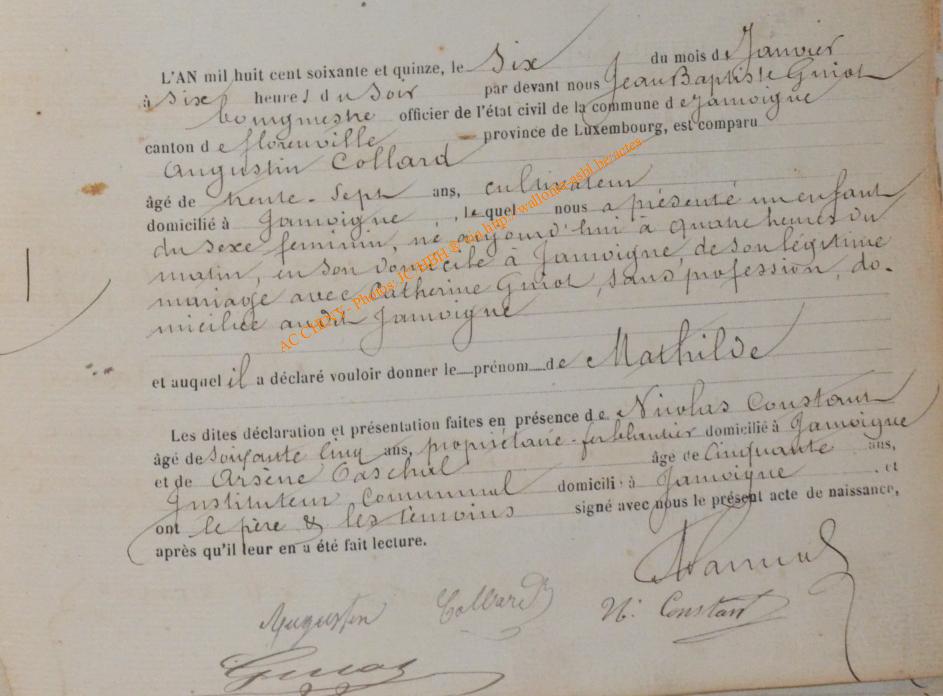 L'AN mil huit cent soixante et quinze, le Six du mois de Janvier
à Six heures du Soir par devant nous Jean Baptiste Guiot
bourgmestre officier de l'état civil de la commune de Jamoigne
canton de florenville province de Luxembourg, est comparu
Augustin Collard
âgé de trente-Sept ans, cultivateur
domicilié à Jamoigne, lequel nous a présenté un enfant
du sexe feminin, né aujourd'hui à quatre heures du
matin, en son domicile à Jamoigne, de son légitime
mariage avec Catherine Guiot, sans profession, do-
miciliée audit Jamoigne
et auquel il a déclaré vouloir donner le prénom de Mathilde
Les dites déclaration et présentation faites en présence de Nicolas Constant
âgé de soixante cinq ans, propriétaire- domicilié à Jamoigne
et de Arsène âgé de cinquante ans,
Instituteur Communal domicilié à Jamoigne et
ont le père & les témoins signé avec nous le présent acte de naissance,
après qu'il leur en a été fait lecture.
Augustin Collard N. Constant
Guiot
AC CHINY- Photos JC HBH © via http://wallonia-asbl.be/actea